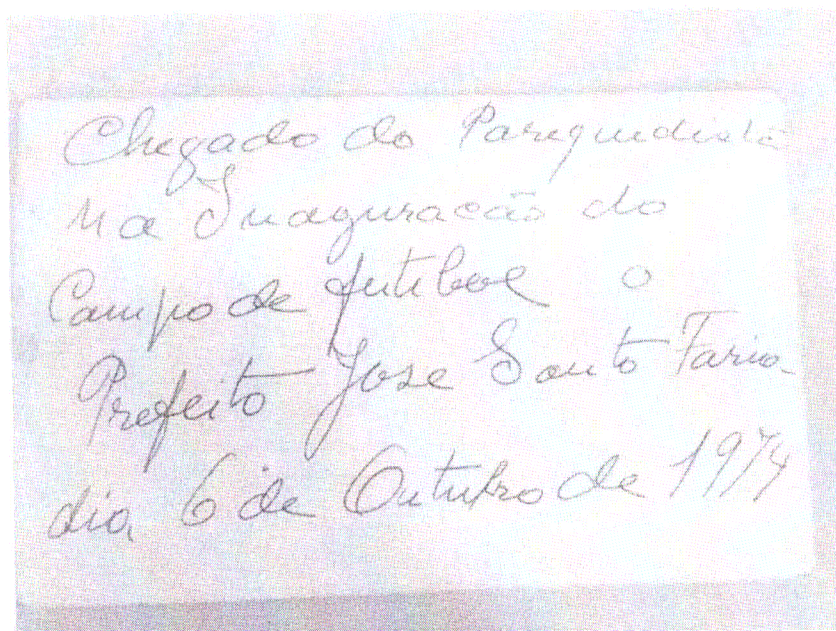 Chegado do Parequedista
na Inaguração do
Campo de futibol o
Prefeito Jose Souto Faria
dia 6 de Outubro de 1974